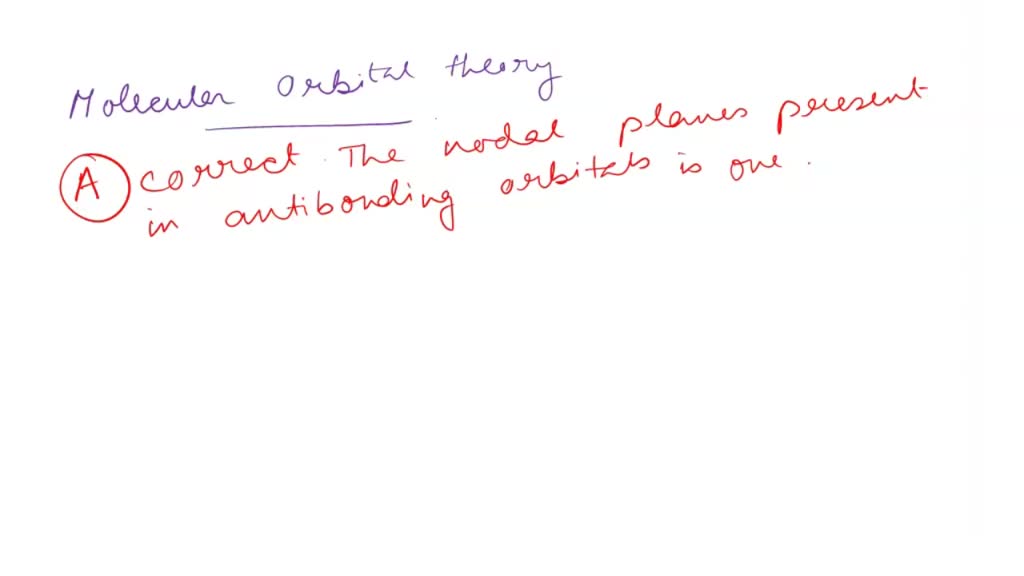 Molecular Orbital theory
A correct. The nodal planes present
in antibonding orbitals is one.